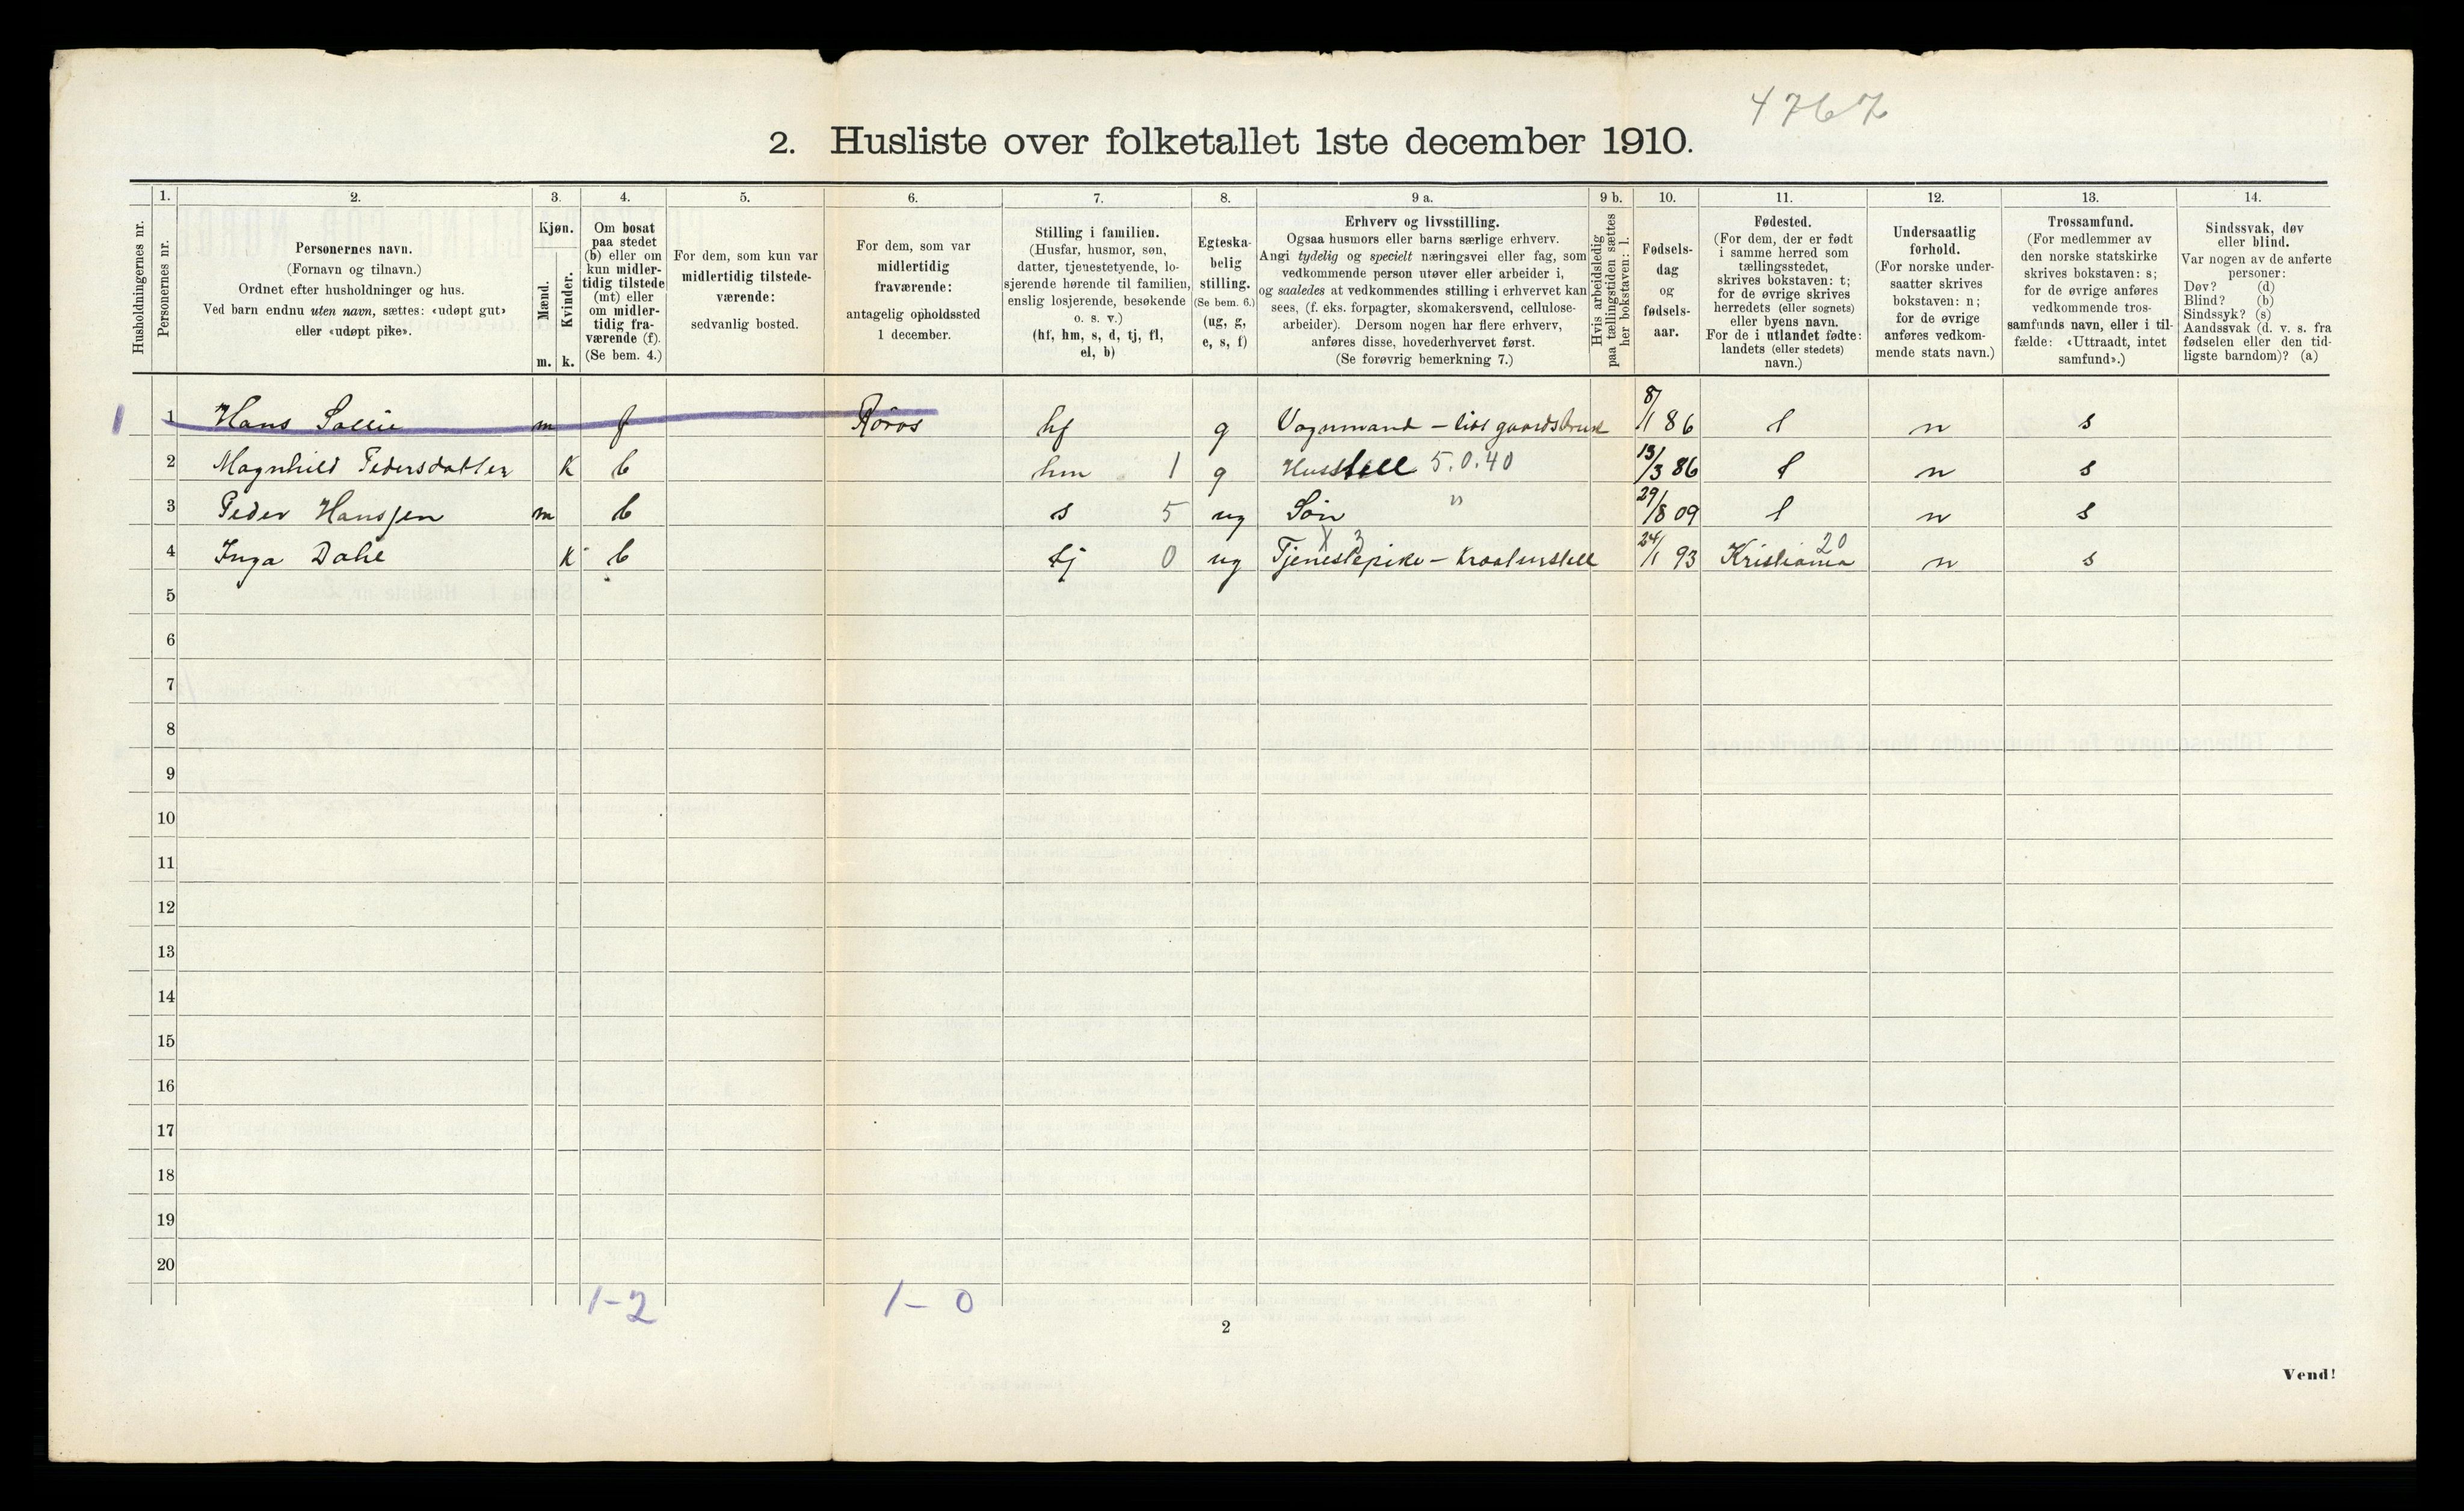 4767
2. Husliste over folketallet 1ste december 1910.
1. 2. 3. 4. 5. 6. 7. 8. 9 a. 9 b. 10. 11. 12. 13. 14.
Husholdningernes nr.
Personernes nr.
Personernes navn.
(Fornavn og tilnavn.)
Ordnet efter husholdninger og hus.
Ved barn endnu uten navn, sættes: «udøpt gut»
eller «udøpt pike».
Kjøn.
Mænd.
Kvinder.
m. k.
Om bosat
paa stedet
(b) eller om
kun midler-
tidig tilstede
(mt) eller
om midler-
tidig fra-
værende (f).
(Se bem. 4.)
For dem, som kun var
midlertidig tilstede-
værende:
sedvanlig bosted.
For dem, som var
midlertidig
fraværende:
antagelig opholdssted
1 december.
Stilling i familien.
(Husfar, husmor, søn,
datter, tjenestetyende, lo-
sjerende hørende til familien,
enslig losjerende, besøkende
o. s. v.)
(hf, hm, s, d, tj, fl,
el, b)
Egteska-
belig
stilling.
(Se bem. 6.)
(ug, g,
e, s, f)
Erhverv og livsstilling.
Ogsaa husmors eller barns særlige erhverv.
Angi tydelig og specielt næringsvei eller fag, som
vedkommende person utøver eller arbeider i,
og saaledes at vedkommendes stilling i erhvervet kan
sees, (f. eks. forpagter, skomakersvend, cellulose-
arbeider). Dersom nogen har flere erhverv,
anføres disse, hovederhvervet først.
(Se forøvrig bemerkning 7.)
Hvis arbeidsledig
paa tællingstiden sættes
her bokstaven: l.
Fødsels-
dag
og
fødsels-
aar.
Fødested.
(For dem, der er født
i samme herred som
tællingsstedet,
skrives bokstaven: t;
for de øvrige skrives
herredets (eller sognets)
eller byens navn.
For de i utlandet fødte:
landets (eller stedets)
navn.)
Undersaatlig
forhold.
(For norske under-
saatter skrives
bokstaven: n;
for de øvrige
anføres vedkom-
mende stats navn.)
Trossamfund.
(For medlemmer av
den norske statskirke
skrives bokstaven: s;
for de øvrige anføres
vedkommende tros-
samfunds navn, eller i til-
fælde: «Uttraadt, intet
samfund».)
Sindssvak, døv
eller blind.
Var nogen av de anførte
personer:
Døv? (d)
Blind? (b)
Sindssyk? (s)
Aandssvak (d. v. s. fra
fødselen eller den tid-
ligste barndom)? (a)
1 1 Hans m f Røros hf g Vognmand – 8/1 86 t n s
2 Magnhild Pedersdatter K b hm 1 g Husstell 5.0.40 13/3 86 t n s
3 Peder Hanssen m b s 5 ug Søn " 29/8 09 t n s
4 Inga Dahl K b tj 0 ug Tjenestepike – Kreaturstell X 3 24/1 93 Kristiania 20 n s
5
6
7
8
9
10
11
12
13
14
15
16
17
18
19
20
1–2 1–0
2
Vend!